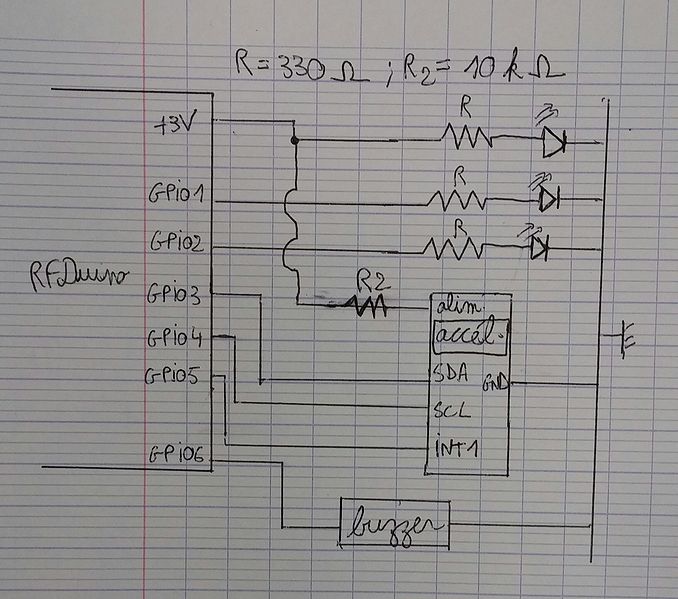 R = 330 Ω ; R2 = 10 k Ω
R
+3V
R
GPiO1
R
GPiO2
RFDuino
R2
GPiO3
alim.
accél.
GPiO4
SDA
GND
GPiO5
SCL
iNT1
GPiO6
buzzer